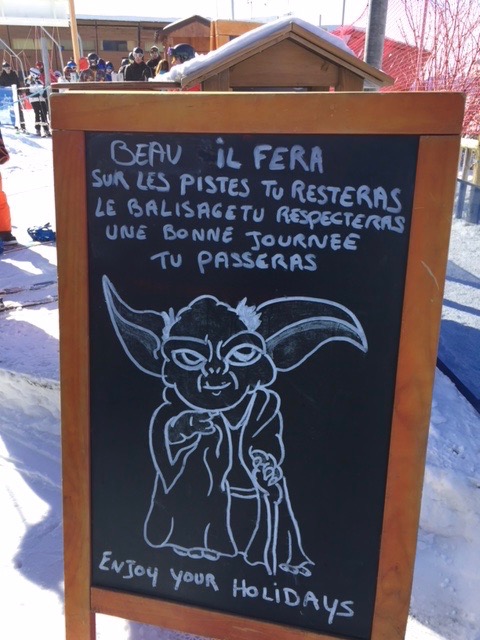 BEAU iL FERA
SUR LES PISTES TU RESTERAS
LE BALISAGE TU RESPECTERAS
UNE BONNE JOURNEE
TU PASSERAS
ENJOY YOUR HOLiDAYS